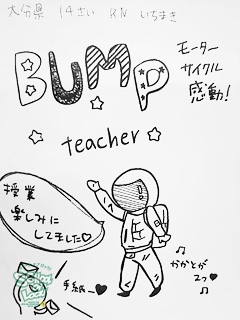 大分県 14さい RN いちまき
BUMP
モーター
サイクル
感動!
teacher
授業
楽しみに
してました♡
手紙→♡
♫
かかとが
2つ♥
♫